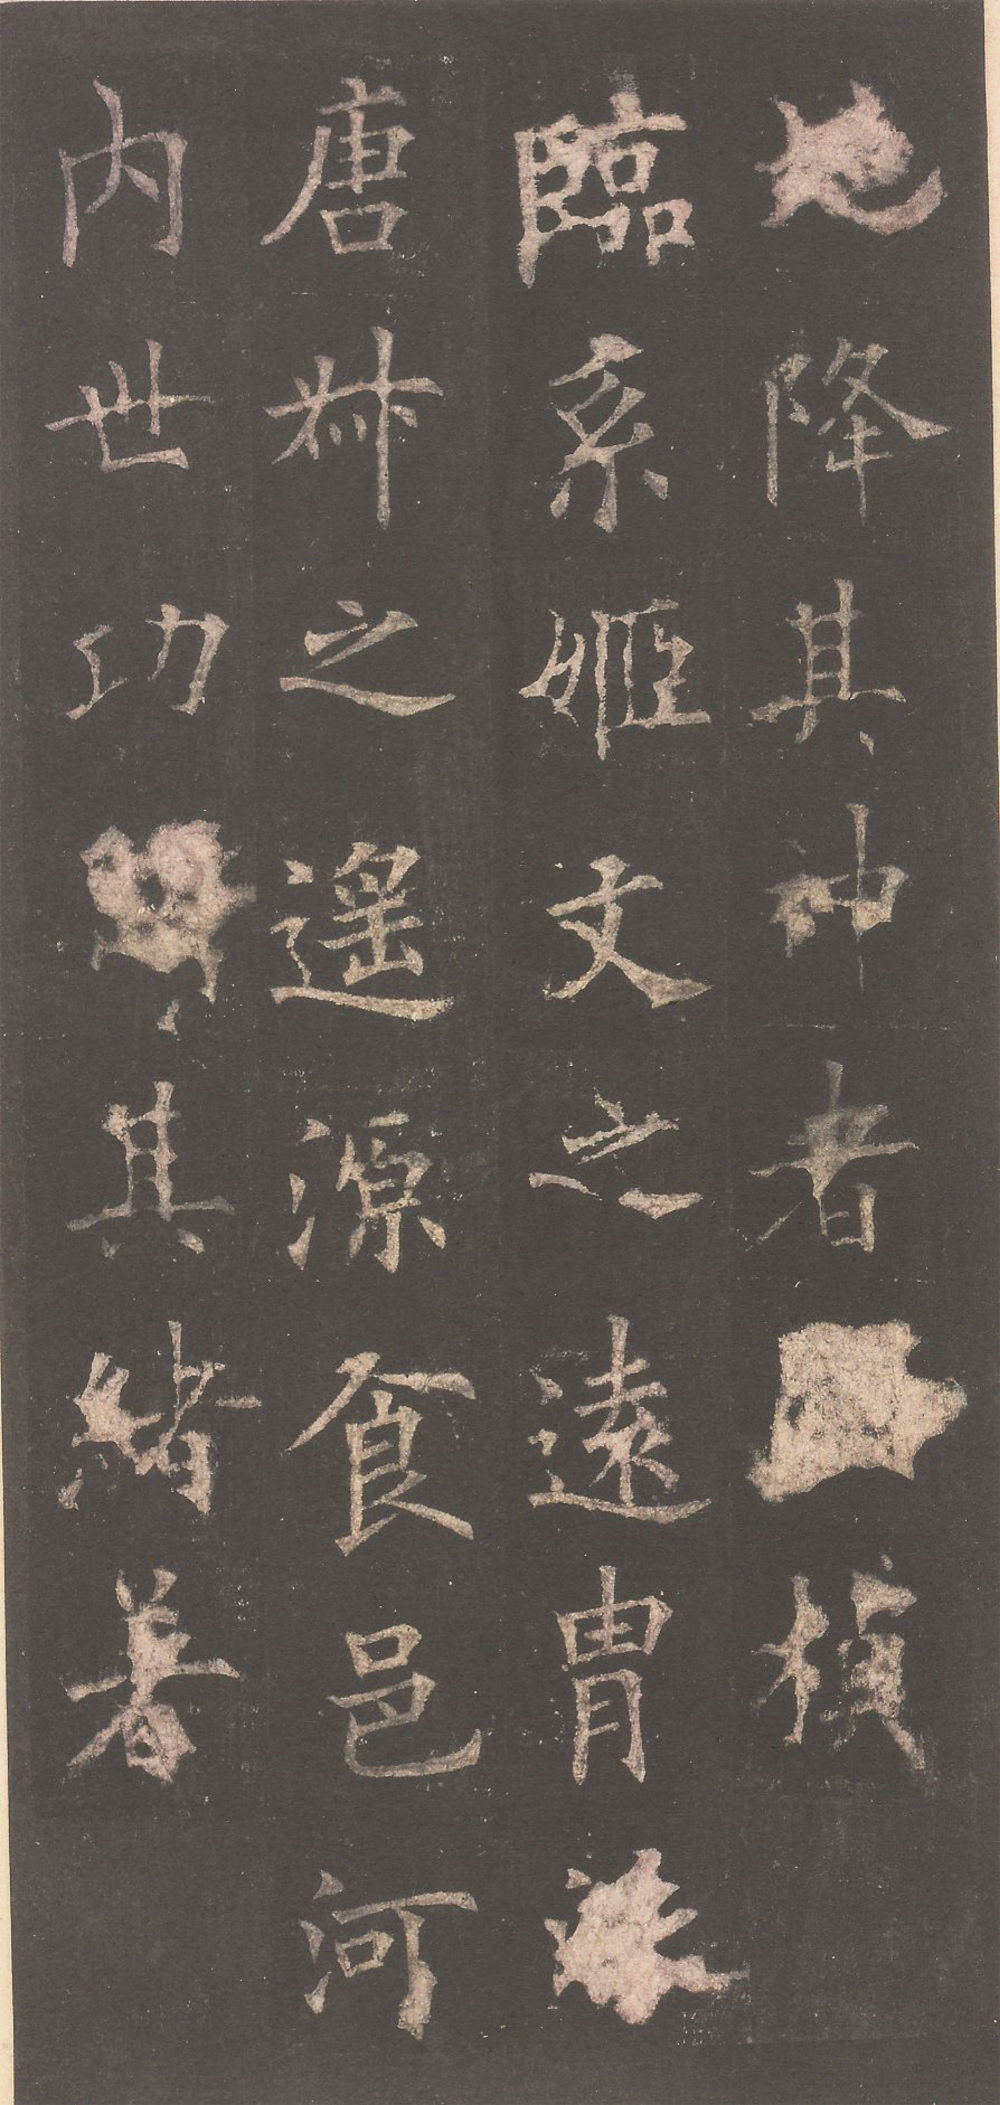 地降其神者楨
臨系姬文之遠冑
唐叔之遥源食邑河
内世功其緒著